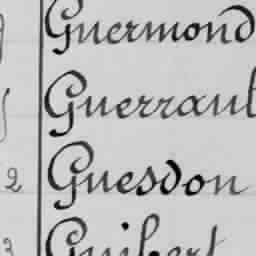 Guermond
Guerraul
2 Guesdon
3 Guibert